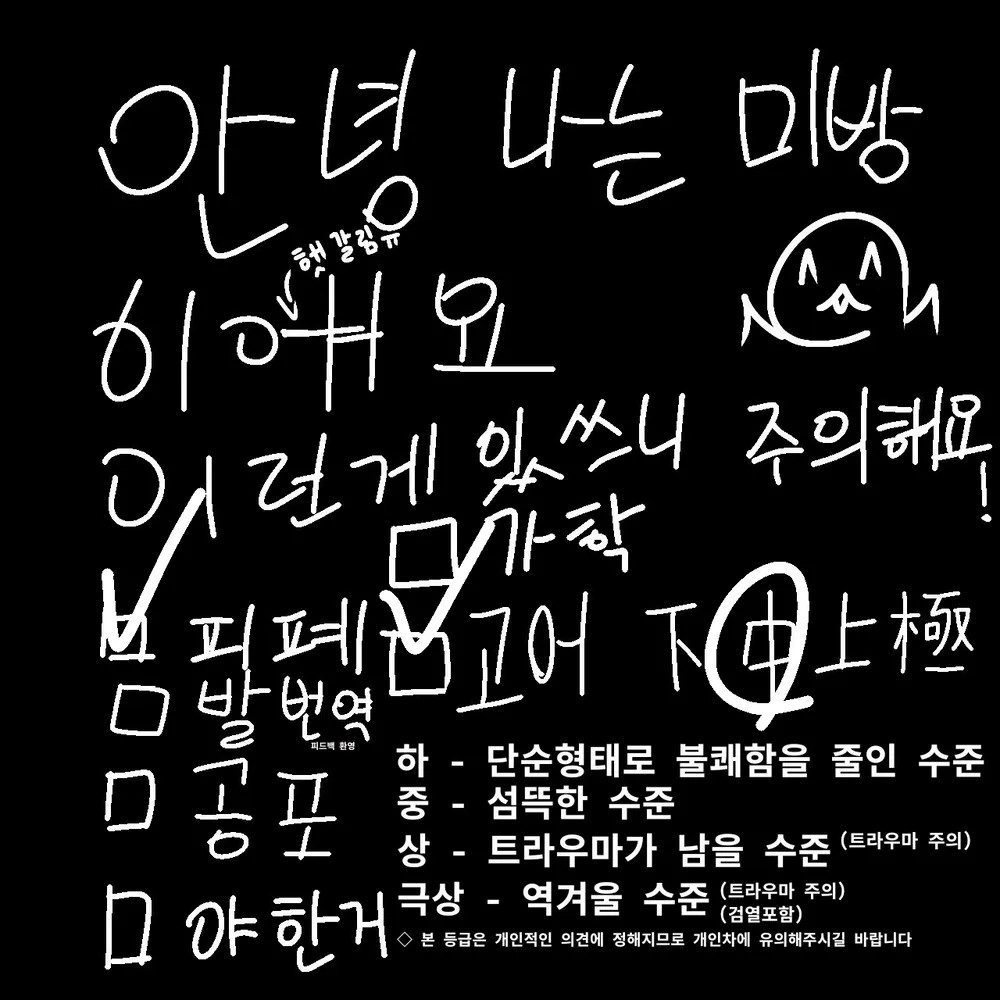 안녕 나는 미방
헷갈림ㅠ
이애요
이런게 있쓰니 주의해요!
가학
피폐 고어 下 中 上 極
발번역
피드백 환영
하 - 단순형태로 불쾌함을 줄인 수준
중 - 섬뜩한 수준
공포
상 - 트라우마가 남을 수준 (트라우마 주의)
극상 - 역겨울 수준 (트라우마 주의)
(검열포함)
야한거
◇ 본 등급은 개인적인 의견에 정해지므로 개인차에 유의해주시길 바랍니다